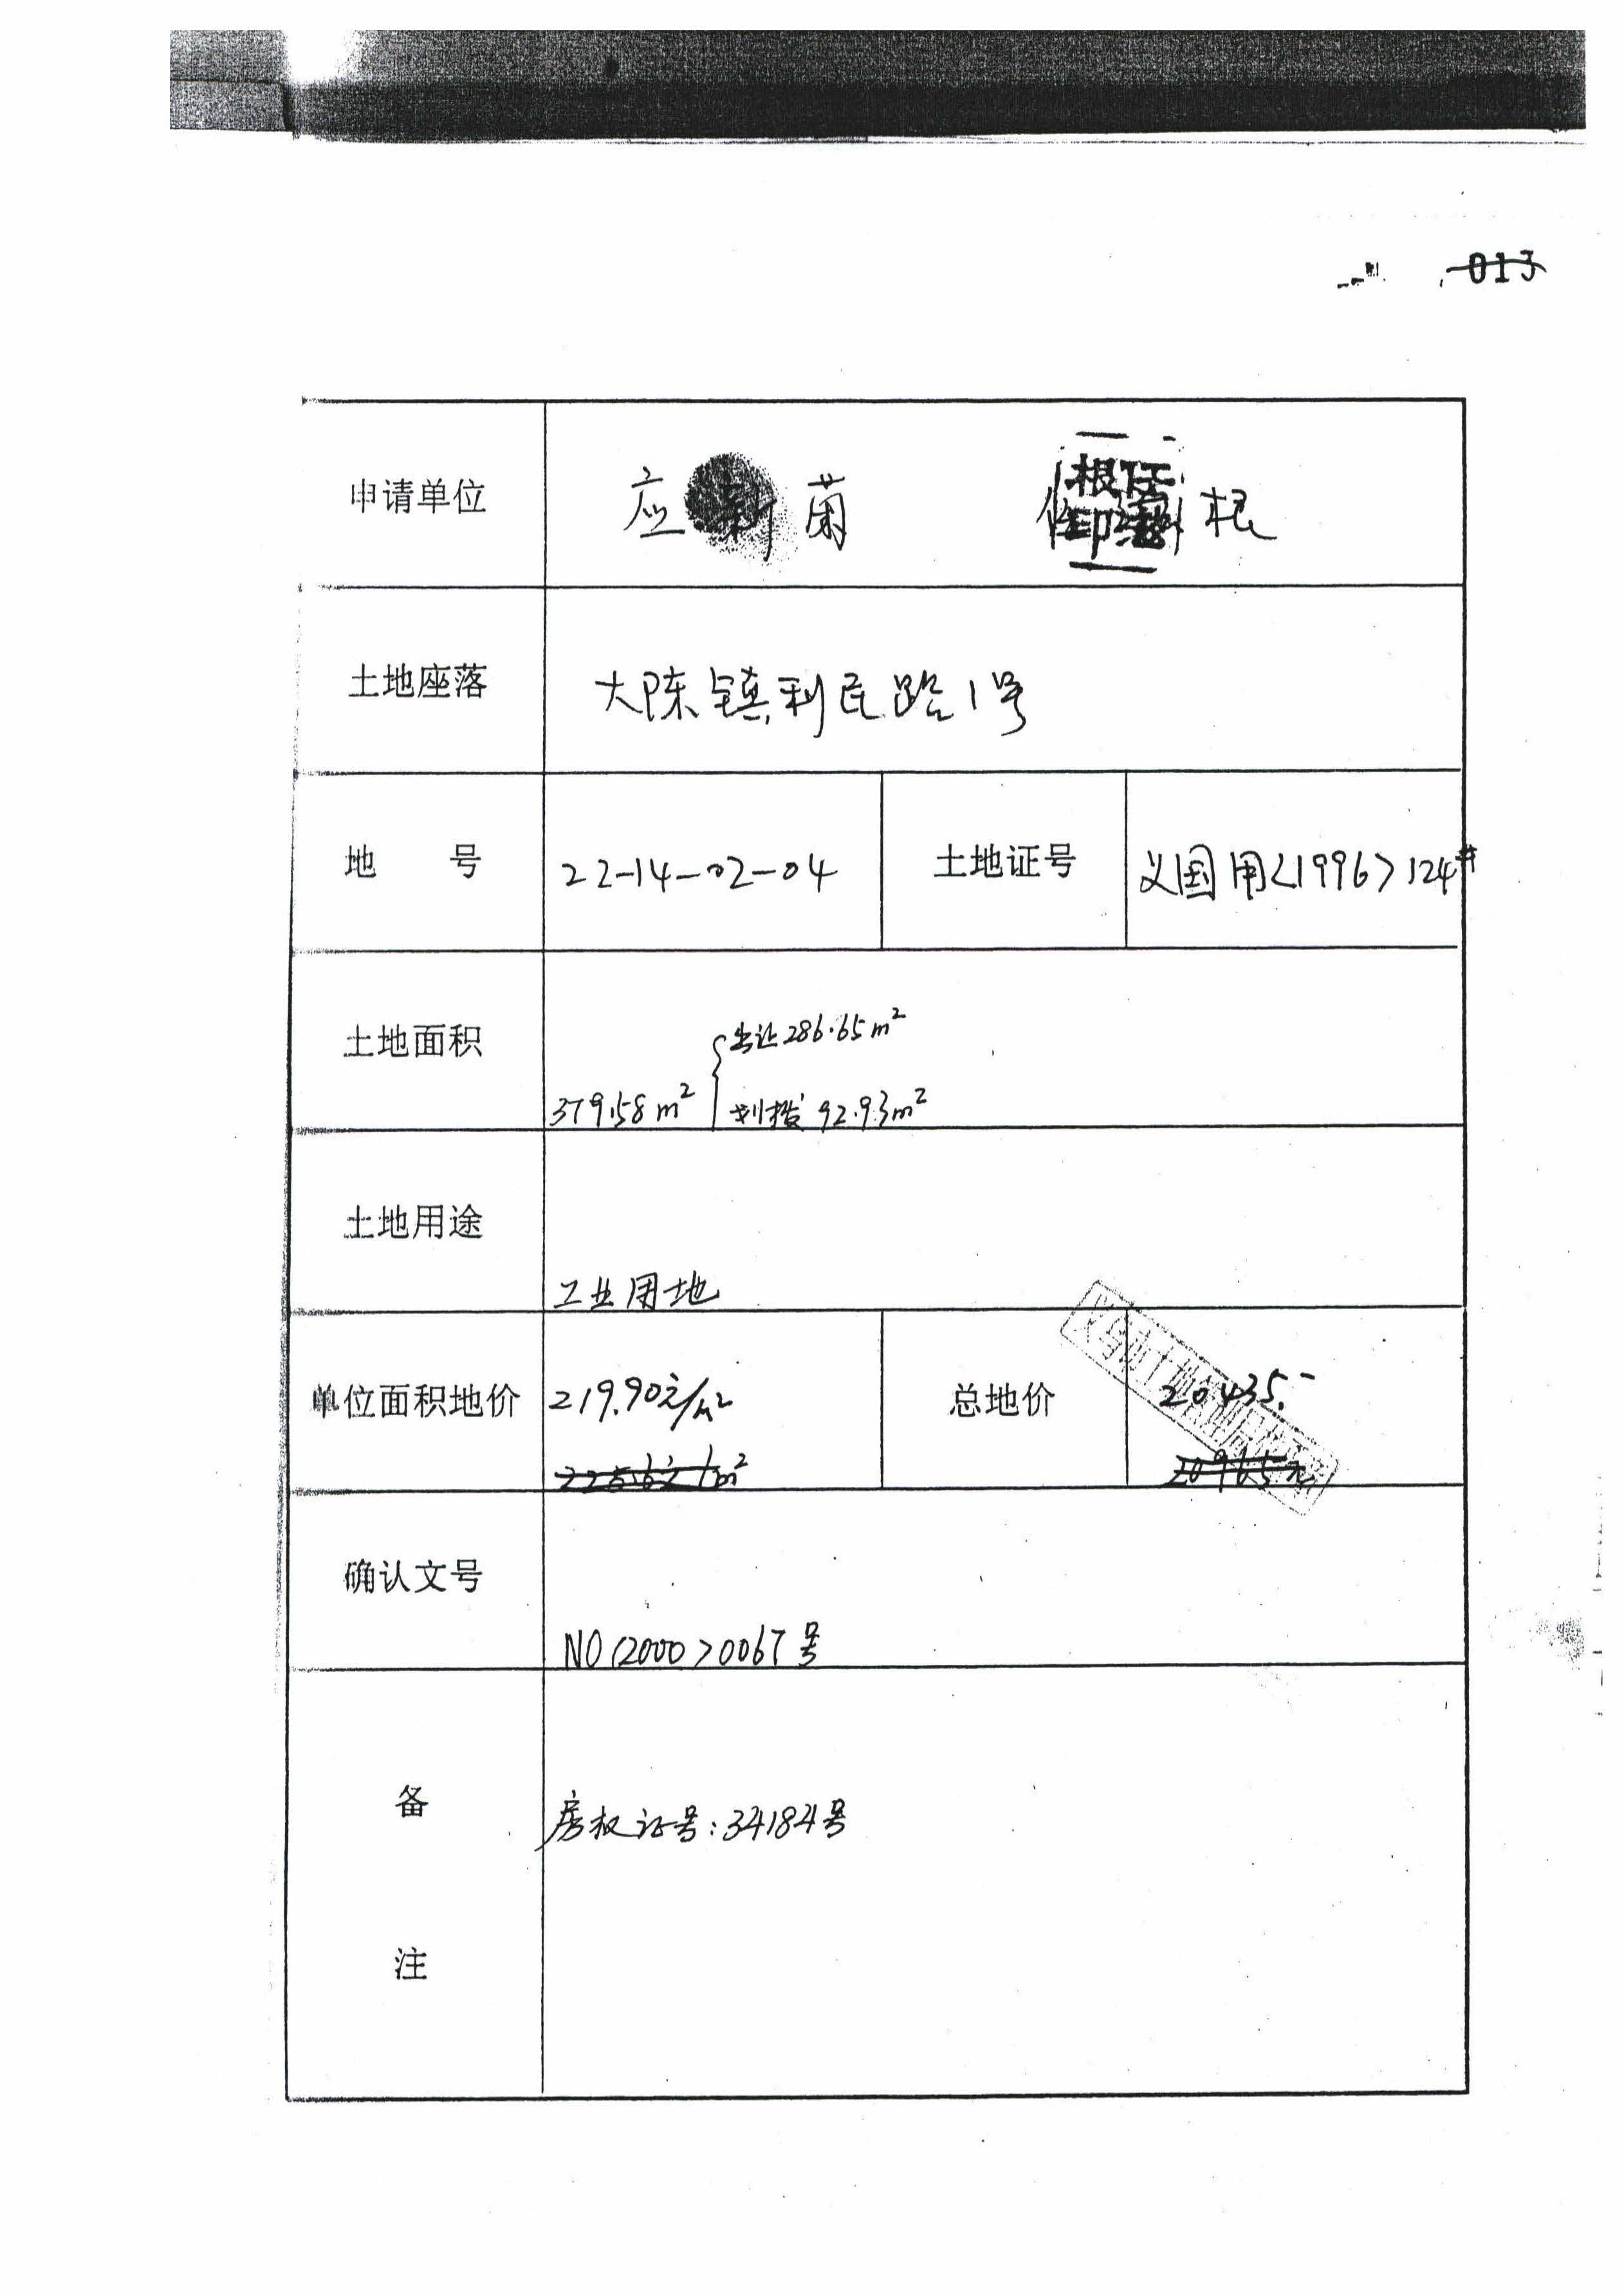 013
申请单位 应新菊 根
土地座落 大陈镇利民路1号
地 号 22-14-02-04 土地证号 义国用<1996>124#
土地面积 379.58m² { 出让286.65m²
划拨 92.93m²
土地用途 工业用地
单位面积地价 219.90元/m² 总地价 20435.-
225.6元/m² 20965元
确认文号 NO(2000>0067号
备 房权证号:34184号
注